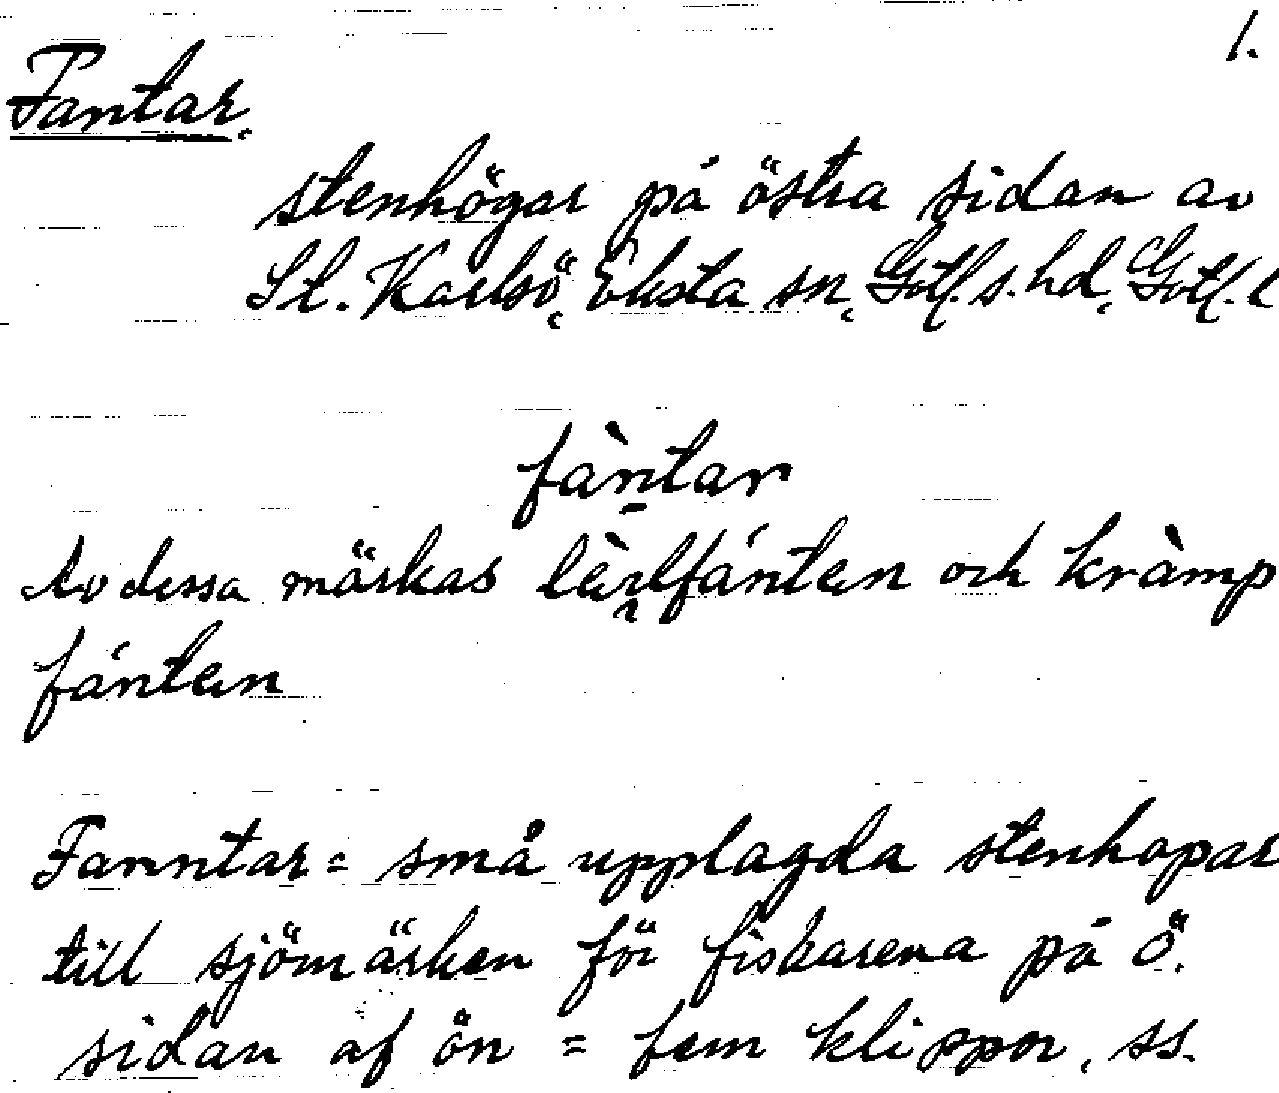 1.
Fantar,
stenhögar på östra sidan av
St. Karlsö, Eksta sn, Gotl. s. hd, Gotl. l
fàntar
Av dessa märkas lèrlfánten och kràmp
fánten
Fanntar = små upplagda stenhopar
till sjömärken för fiskarena på ö.
sidan af ön = fem klippor, ss.